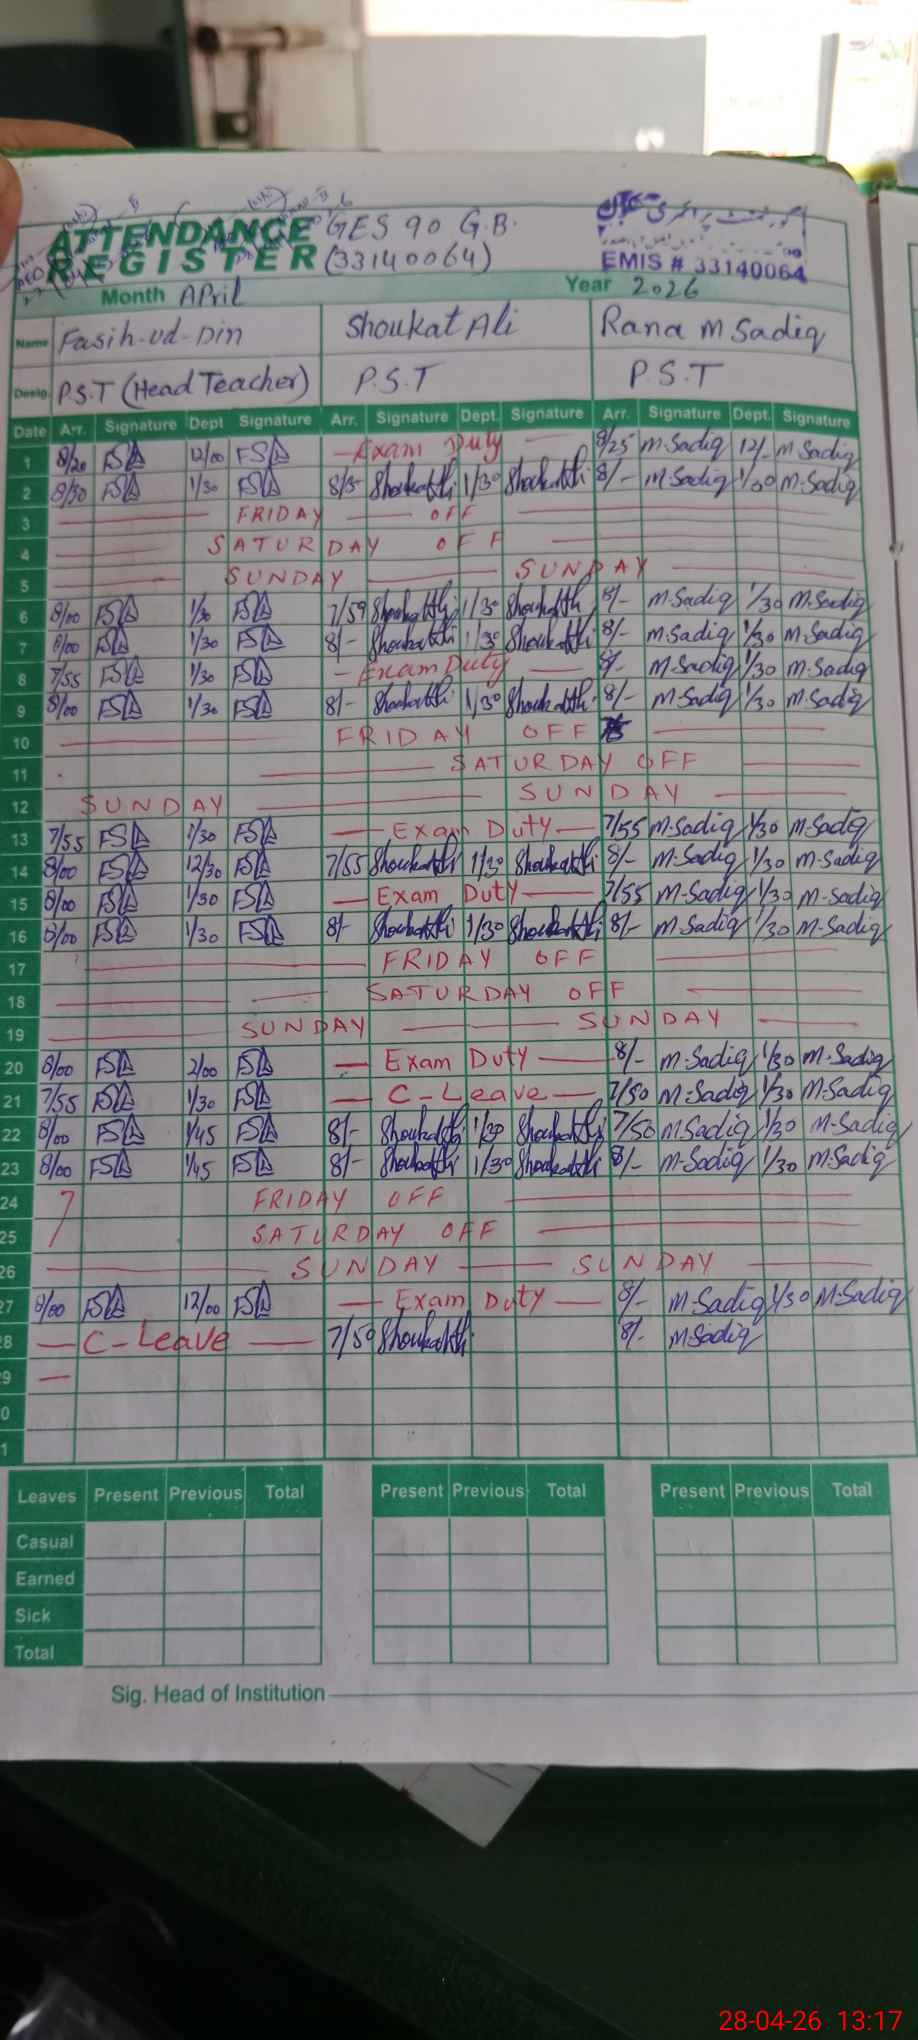 ATTENDANCE GES 90 G.B.
REGISTER (33140064)
EMIS # 33140064
Month April Year 2026
Name Fasih-ud-Din Shoukat Ali Rana M Sadiq
Desig. P.S.T (Head Teacher) P.S.T P.S.T
Date Arr. Signature Dept Signature Arr. Signature Dept. Signature Arr. Signature Dept. Signature
1 8/20 12/00 — Exam Duty — 8/25 M.Sadiq 12/- M.Sadiq
2 8/30 1/30 8/5 Shoukat Ali 1/30 Shoukat Ali 8/- M.Sadiq 1/30 M.Sadiq
3 FRIDAY OFF
4 SATURDAY OFF
5 SUNDAY SUNDAY
6 8/00 1/30 7/59 Shoukat Ali 1/30 Shoukat Ali 8/- M.Sadiq 1/30 M.Sadiq
7 8/00 1/30 8/- Shoukat Ali 1/30 Shoukat Ali 8/- M.Sadiq 1/30 M.Sadiq
8 7/55 1/30 — Exam Duty — 8/- M.Sadiq 1/30 M.Sadiq
9 8/00 1/30 8/- Shoukat Ali 1/30 Shoukat Ali 8/- M.Sadiq 1/30 M.Sadiq
10 FRIDAY OFF
11 SATURDAY OFF
12 SUNDAY SUNDAY
13 7/55 1/30 — Exam Duty — 7/55 M.Sadiq 1/30 M.Sadiq
14 8/00 12/30 7/55 Shoukat Ali 1/30 Shoukat Ali 8/- M.Sadiq 1/30 M.Sadiq
15 8/00 1/30 — Exam Duty — 7/55 M.Sadiq 1/30 M.Sadiq
16 8/00 1/30 8/- Shoukat Ali 1/30 Shoukat Ali 8/- M.Sadiq 1/30 M.Sadiq
17 FRIDAY OFF
18 SATURDAY OFF
19 SUNDAY SUNDAY
20 8/00 2/00 — Exam Duty — 8/- M.Sadiq 1/30 M.Sadiq
21 7/55 1/30 — C-Leave — 7/50 M.Sadiq 1/30 M.Sadiq
22 8/00 1/45 8/- Shoukat Ali 1/30 Shoukat Ali 7/50 M.Sadiq 1/30 M.Sadiq
23 8/00 1/45 8/- Shoukat Ali 1/30 Shoukat Ali 8/- M.Sadiq 1/30 M.Sadiq
24 FRIDAY OFF
25 SATURDAY OFF
26 SUNDAY SUNDAY
27 8/00 12/00 — Exam Duty — 8/- M.Sadiq 1/30 M.Sadiq
28 — C-Leave — 7/50 Shoukat Ali 8/- M.Sadiq
9 —
0
1
Leaves Present Previous Total Present Previous Total Present Previous Total
Casual
Earned
Sick
Total
Sig. Head of Institution
28-04-26 13:17